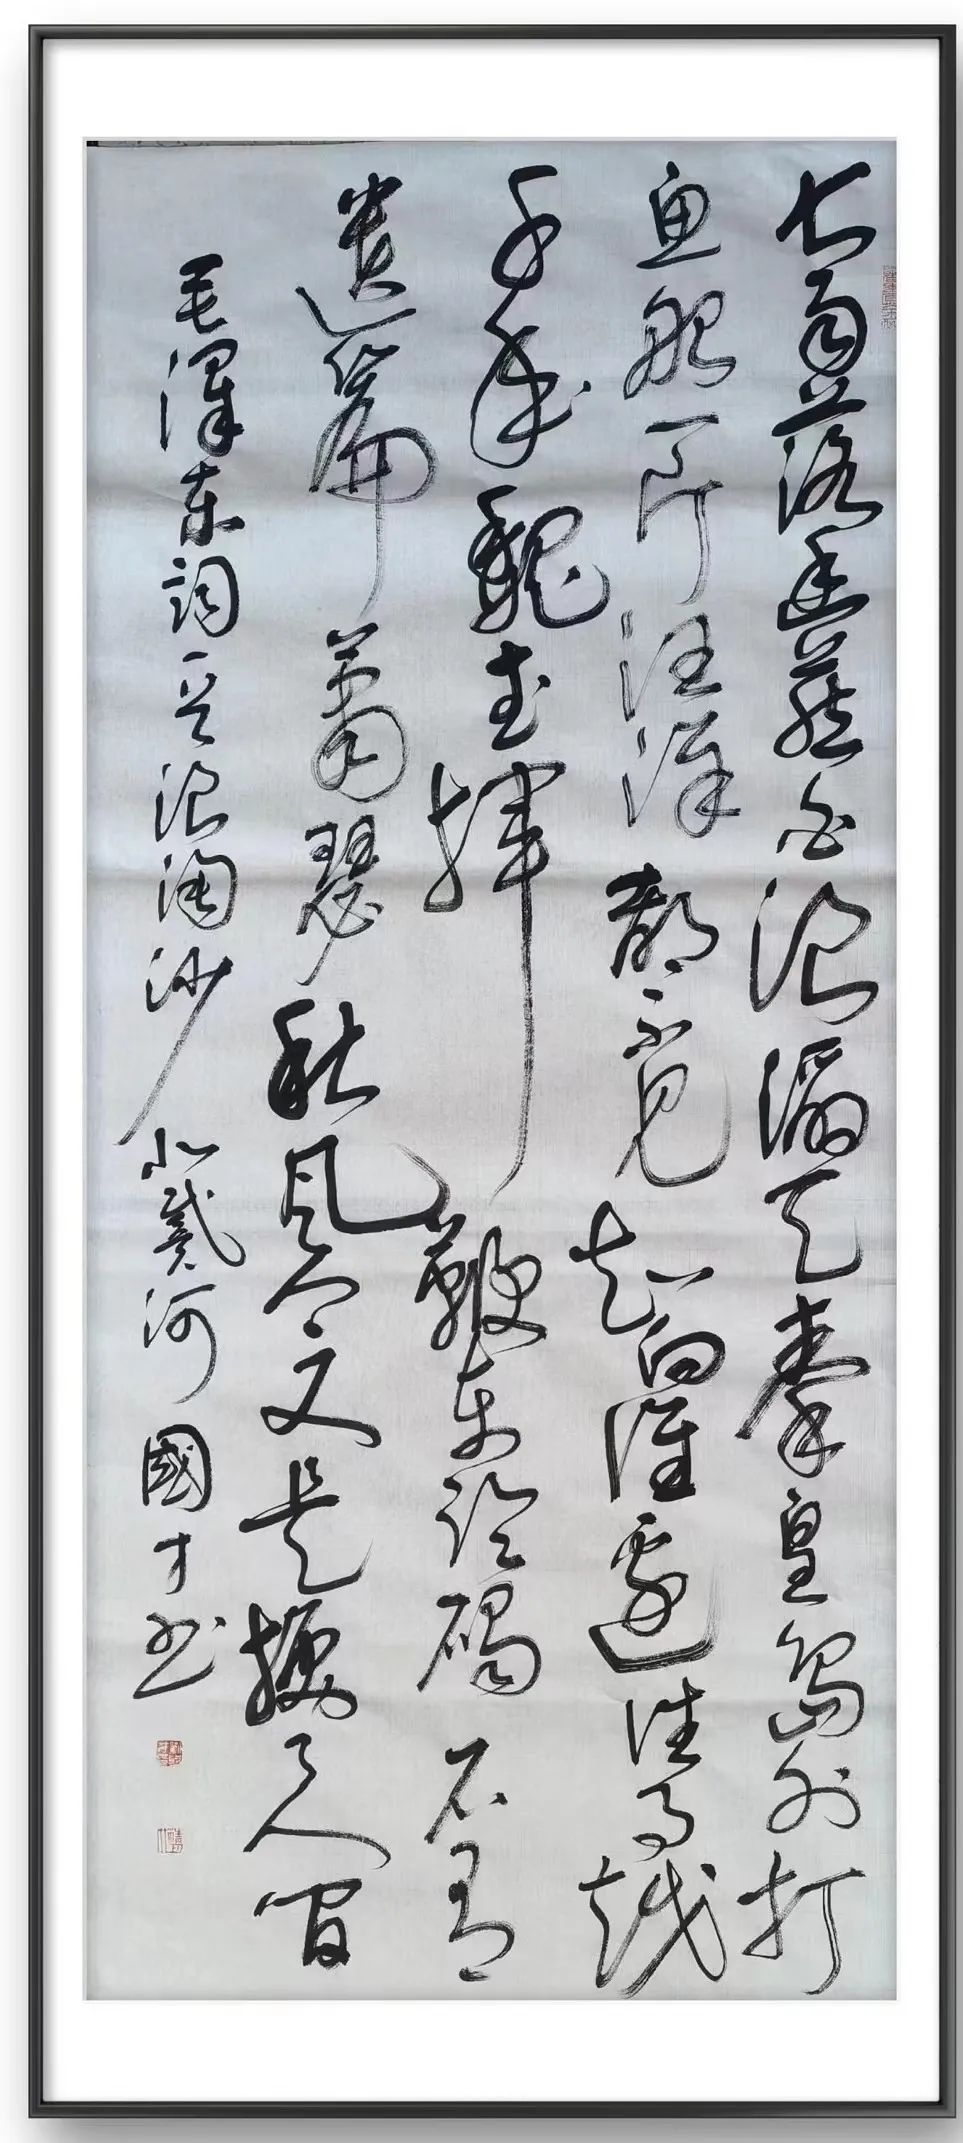 大雨落幽燕白浪滔天秦皇岛外打
鱼船一片汪洋都不见知向谁边往事越
千年魏武挥鞭东临碣石有
遗篇萧瑟秋风今又是换了人间
毛澤东詞一首浪淘沙北戴河國才书